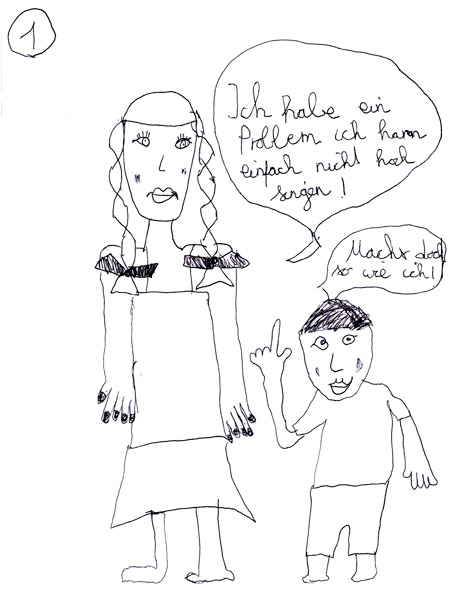 1
Ich habe ein
Problem ich kann
einfach nicht hoch
singen!
Machs doch
so wie ich!